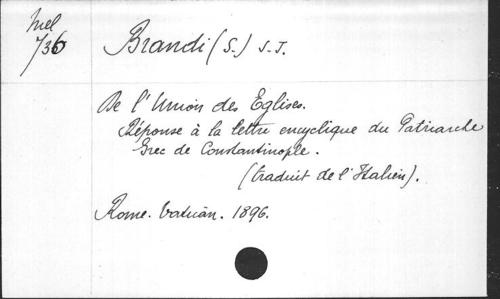 Mel
736
Brandi (S.) S.J.
De l'Union des Eglises.
Réponse à la lettre encyclique du Patriarche
Grec de Constantinople.
(traduit de l'Italien).
Rome. Vatican. 1896.